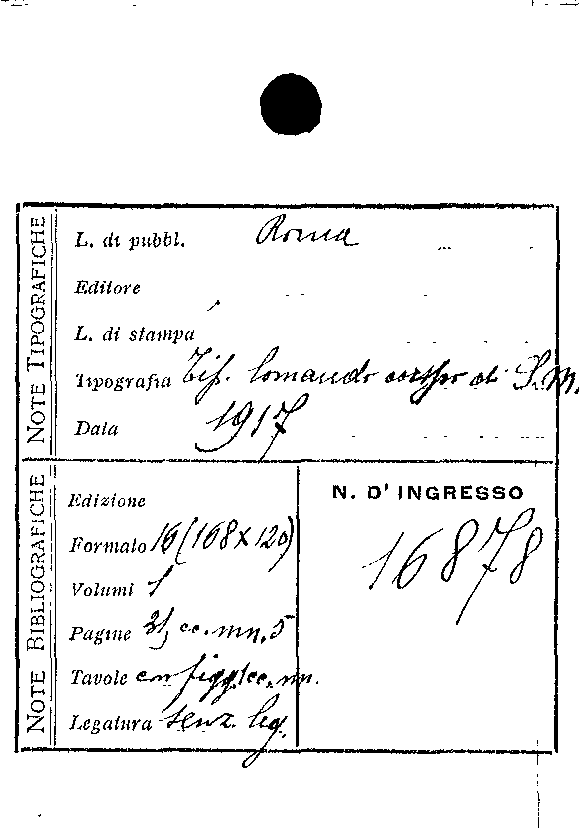 NOTE TIPOGRAFICHE
L. di pubbl. Roma
Editore
L. di stampa
Tipografia Tip. Comando di S.M.
Data 1917
NOTE BIBLIOGRAFICHE
Edizione
Formato 16 (168 x 120)
Volumi 1
Pagine 31, cc. nn. 5
Tavole con figg. cc. nn.
Legatura senz. leg.
N. D' INGRESSO
16878